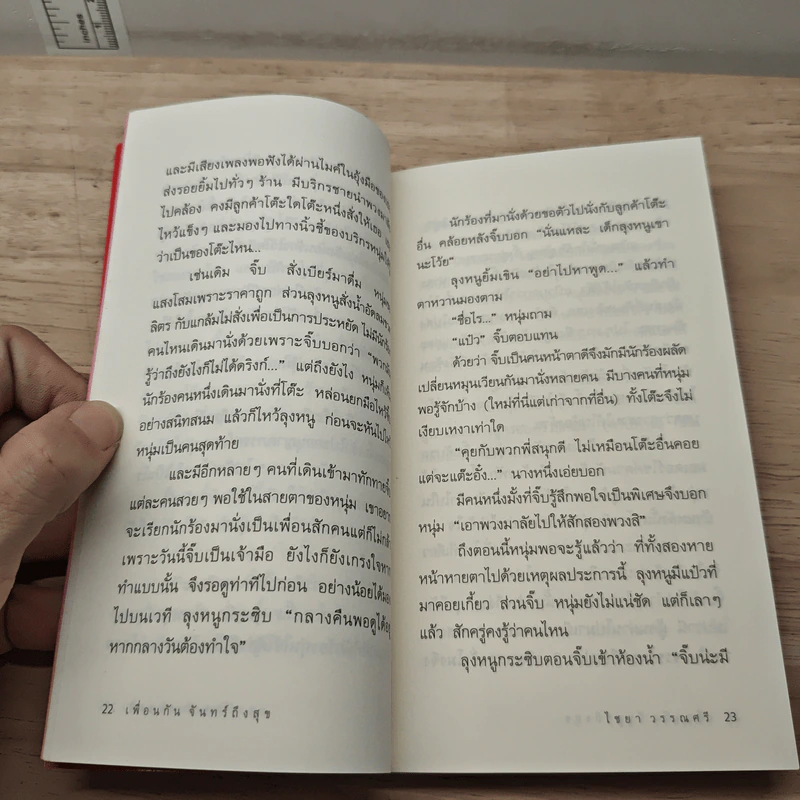 inches
และมีเสียงเพลงพอฟังได้ผ่านไมค์ในอุ้งมือ
ส่งรอยยิ้มไปทั่วๆ ร้าน มีบริกรชายนำพวงมา
ไปคล้อง คงมีลูกค้าโต๊ะใดโต๊ะหนึ่งสั่งให้เธอ
ไหว้แข็งๆ และมองไปทางนิ้วชี้ของบริกรหนุ่ม
ว่าเป็นของโต๊ะไหน...
เช่นเดิม จิ๊บ สั่งเบียร์มาดื่ม หนุ่ม
แสงโสมเพราะราคาถูก ส่วนลุงหนูสั่งน้ำอัดลม
ลิตร กับแกล้มไม่สั่งเพื่อเป็นการประหยัด ไม่มีนัก
คนไหนเดินมานั่งด้วยเพราะจิ๊บบอกว่า “พวก
รู้ว่าถึงยังไงก็ไม่ได้ดริงก์...” แต่ถึงยังไง หนุ่มก็
นักร้องคนหนึ่งเดินมานั่งที่โต๊ะ หล่อนยกมือไหว้
อย่างสนิทสนม แล้วก็ไหว้ลุงหนู ก่อนจะหันไป
หนุ่มเป็นคนสุดท้าย
และมีอีกหลายๆ คนที่เดินเข้ามาทักทาย
แต่ละคนสวยๆ พอใช้ในสายตาของหนุ่ม เขา
จะเรียกนักร้องมานั่งเป็นเพื่อนสักคนแต่ก็ไม่
เพราะวันนี้จิ๊บเป็นเจ้ามือ ยังไงก็ยังเกรงใจ
ทำแบบนั้น จึงรอดูท่าทีไปก่อน อย่างน้อยได้
ไปบนเวที ลุงหนูกระซิบ “กลางคืนพอดูได้
หากกลางวันต้องทำใจ”
22 เพื่อนกัน จันทร์ถึงสุข
นักร้องที่มานั่งด้วยขอตัวไปนั่งกับลูกค้าโต๊ะ
อื่น คล้อยหลังจิ๊บบอก “นั่นแหละ เด็กลุงหนูเขา
นะโว้ย”
ลุงหนูยิ้มเขิน “อย่าไปหาพูด...” แล้วทำ
ตาหวานมองตาม
“ชื่อไร...” หนุ่มถาม
“แป๋ว” จิ๊บตอบแทน
ด้วยว่า จิ๊บเป็นคนหน้าตาดีจึงมักมีนักร้องผลัด
เปลี่ยนหมุนเวียนกันมานั่งหลายคน มีบางคนที่หนุ่ม
พอรู้จักบ้าง (ใหม่ที่นี่แต่เก่าจากที่อื่น) ทั้งโต๊ะจึงไม่
เงียบเหงาเท่าใด
“คุยกับพวกพี่สนุกดี ไม่เหมือนโต๊ะอื่นคอย
แต่จะแต๊ะอั๋ง...” นางหนึ่งเอ่ยบอก
มีคนหนึ่งมั้งที่จิ๊บรู้สึกพอใจเป็นพิเศษจึงบอก
หนุ่ม “เอาพวงมาลัยไปให้สักสองพวงสิ”
ถึงตอนนี้หนุ่มพอจะรู้แล้วว่า ที่ทั้งสองหาย
หน้าหายตาไปด้วยเหตุผลประการนี้ ลุงหนูมีแป๋วที่
มาคอยเกี้ยว ส่วนจิ๊บ หนุ่มยังไม่แน่ชัด แต่ก็เลาๆ
แล้ว สักครู่คงรู้ว่าคนไหน
ลุงหนูกระซิบตอนจิ๊บเข้าห้องน้ำ “จิ๊บน่ะมี
ไชยา วรรณศรี 23